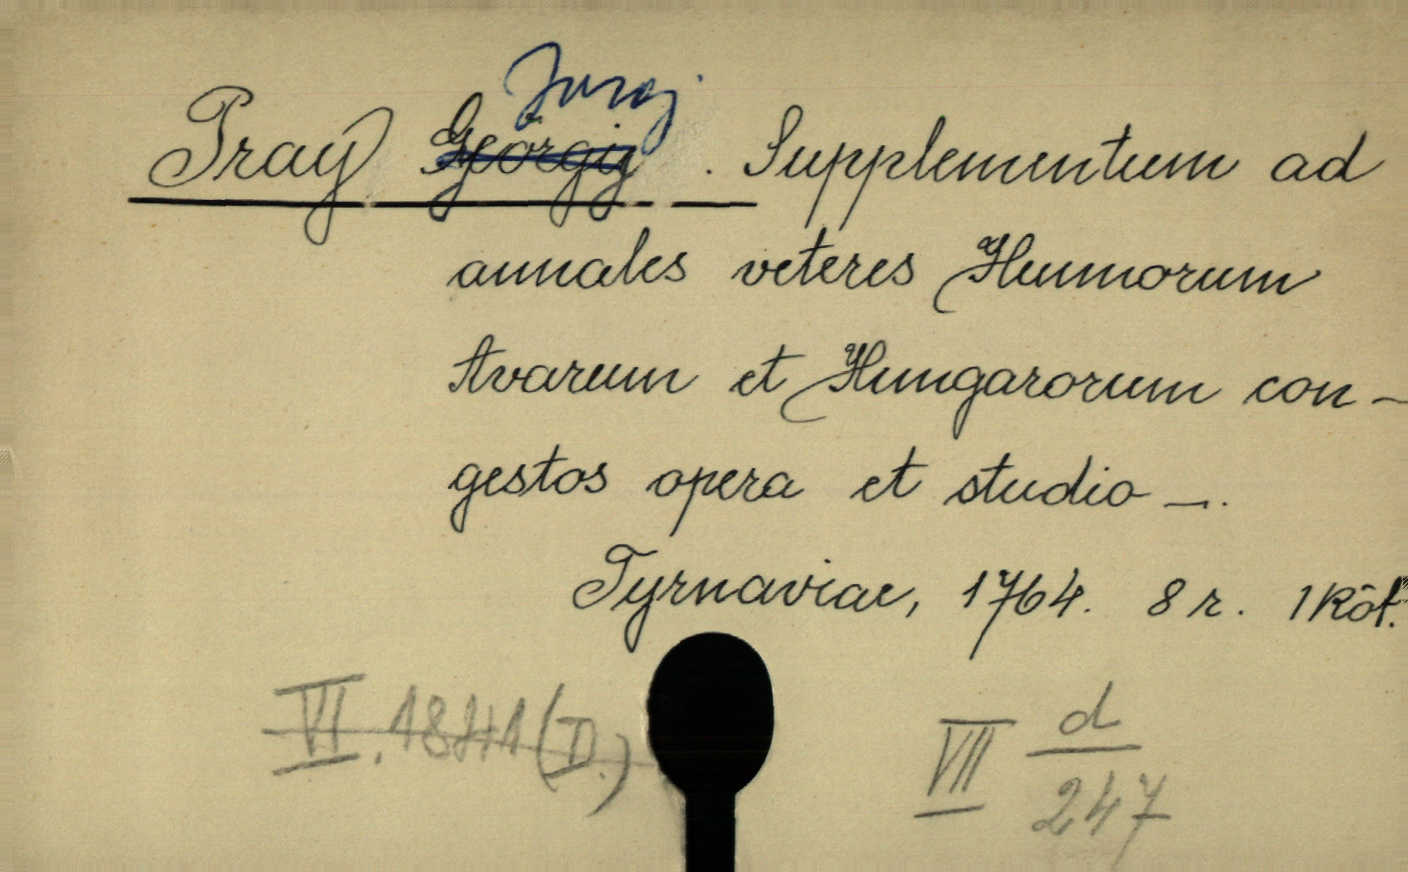 Juraj
Pray Georgij . Supplementum ad
annales veteres Hunnorum
Avarum et Hungarorum con-
gestos opera et studio —.
Tyrnaviae, 1764. 8 r. 1 Köt.
VI. 1841 (D.)
VII d/247